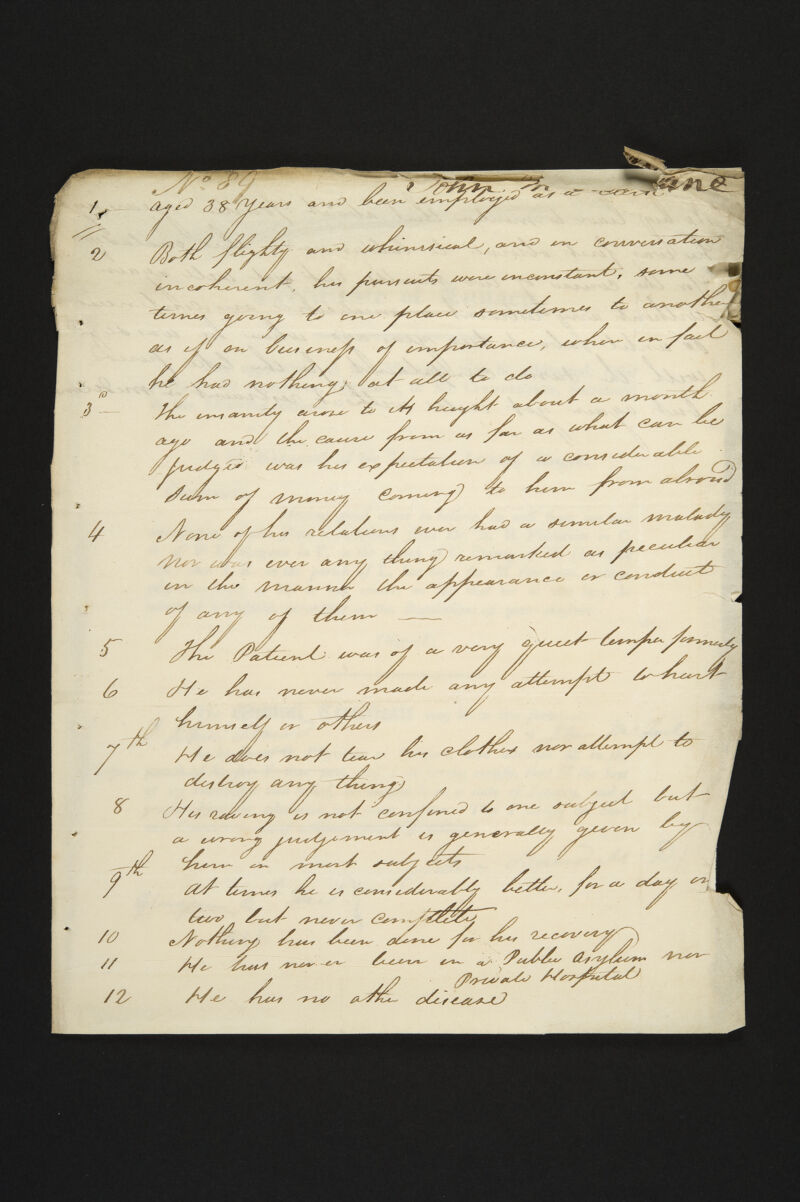 No 89 John M ane
1 aged 38 Years and been employed as a
2 Both flighty and whimsical, and in conversation
incoherent, his pursuits were inconstant, some
times going to one place sometimes to another
as if on business of importance, when in fact
he had nothing at all to do
3d The insanity arose to its height about a month
ago and the cause from as far as what can be
judged was his expectation of a considerable
sum of money coming to him from abroad
4 None of his relations ever had a similar malady
nor was ever any thing remarked as peculiar
in the manner the appearance or conduct
of any of them —
5 The Patient was of a very quiet temper formerly
6 He has never made any attempt to hurt
himself or others
7th He does not tear his clothes nor attempt to
destroy any thing
8 His raving is not confined to one subject but
a wrong judgement is generally given by
him on most subjects
9th At times he is considerably better, for a day or
two but never completely
10 Nothing has been done for his recovery
11 He has never been in a Public Asylum nor
Private Hospital
12 He has no other disease